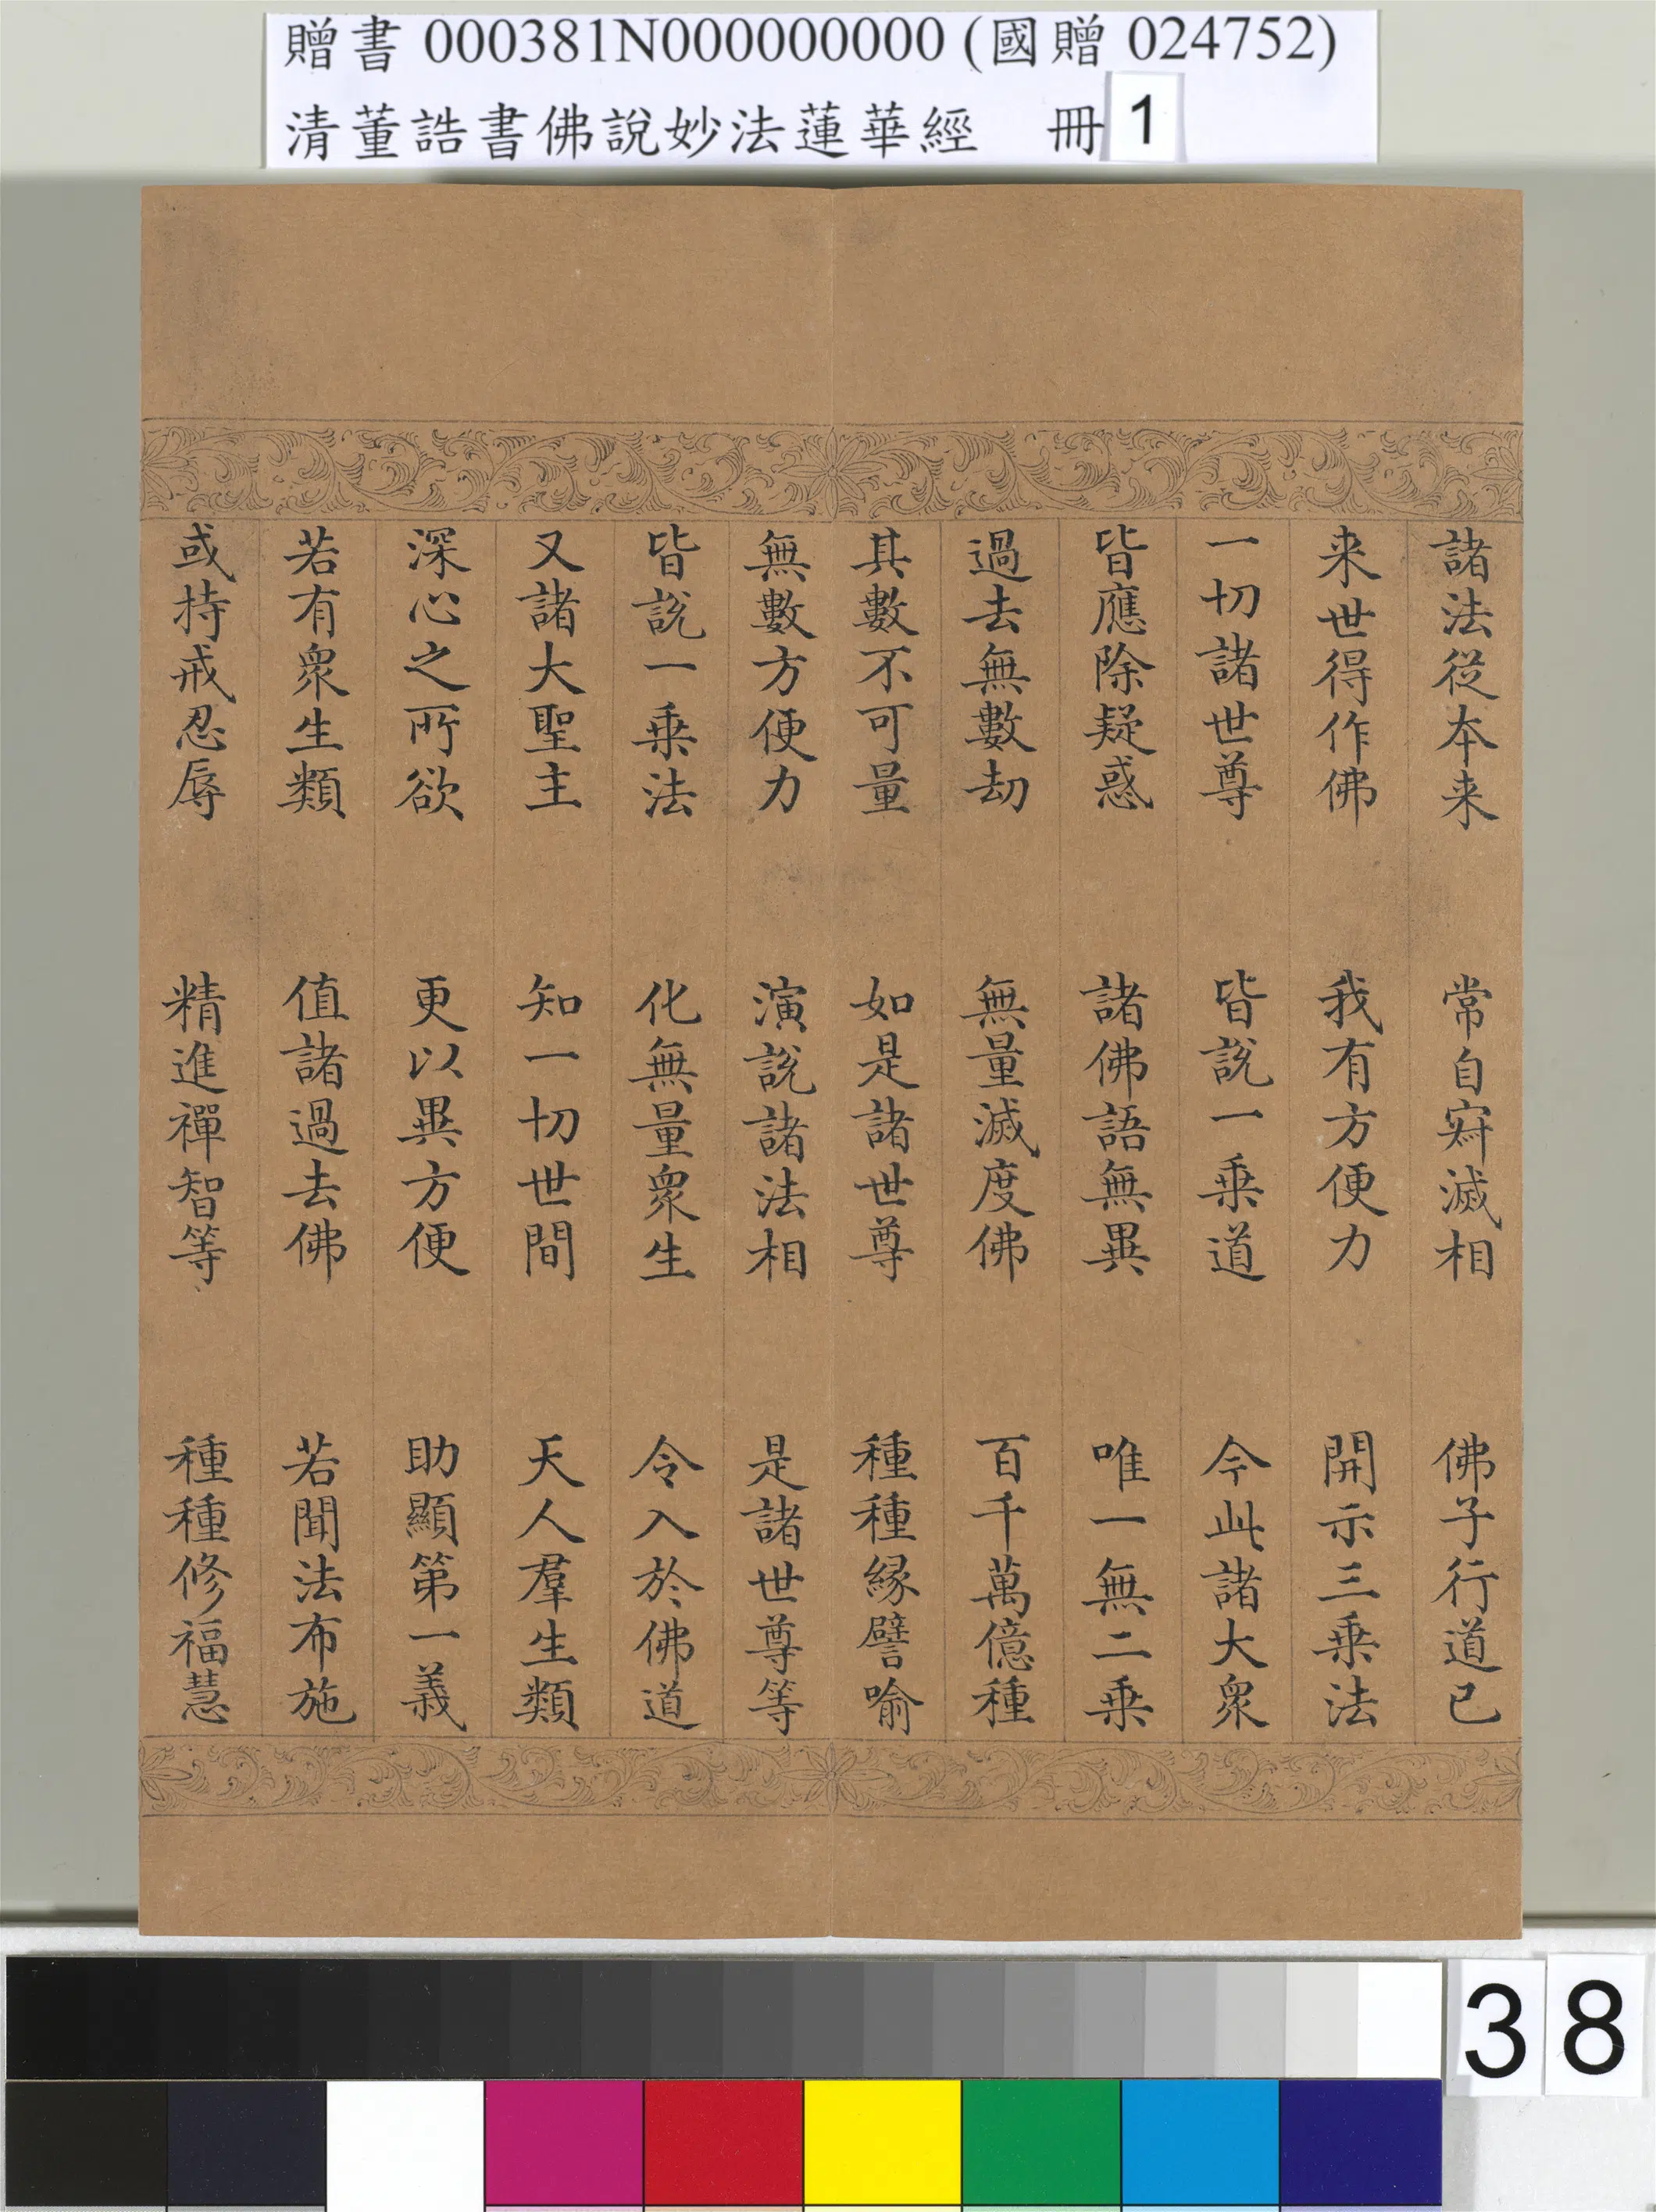 贈書 000381N000000000 (國贈 024752)
清董誥書佛說妙法蓮華經 冊 1
諸法從本来 常自㝛滅相 佛子行道已
来世得作佛 我有方便力 開示三乗法
一切諸世尊 皆說一乗道 今此諸大衆
皆應除疑惑 諸佛語無異 唯一無二乗
過去無數劫 無量滅度佛 百千萬億種
其數不可量 如是諸世尊 種種緣譬喻
無數方便力 演說諸法相 是諸世尊等
皆說一乗法 化無量衆生 令入於佛道
又諸大聖主 知一切世間 天人羣生類
深心之所欲 更以異方便 助顯第一義
若有衆生類 值諸過去佛 若聞法布施
或持戒忍辱 精進禪智等 種種修福慧
38